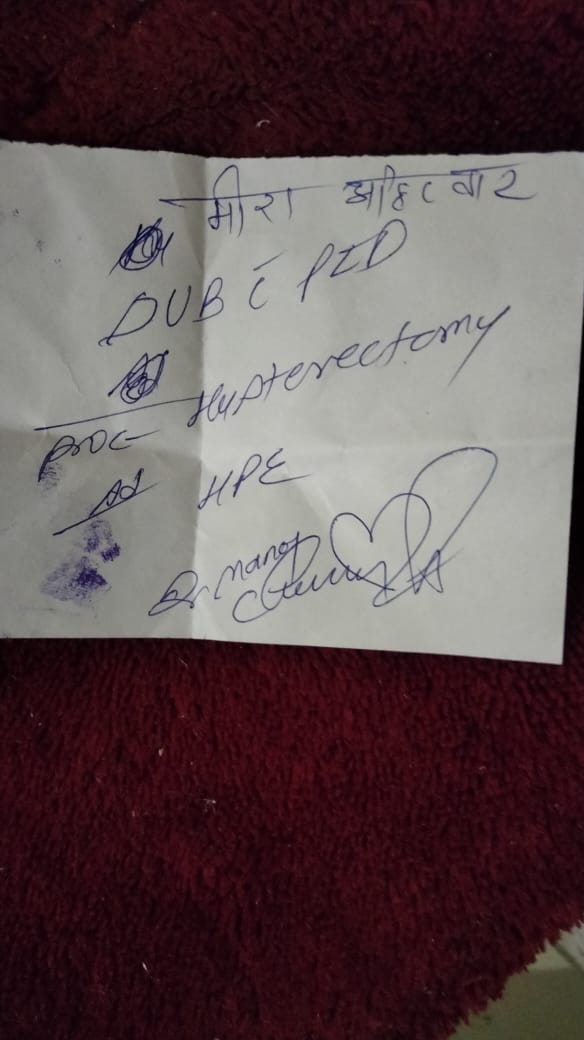 मीरा अहिरवार
DUB c̄ PID
Proc Hysterectomy
Ad HPE
Dr. Manoj